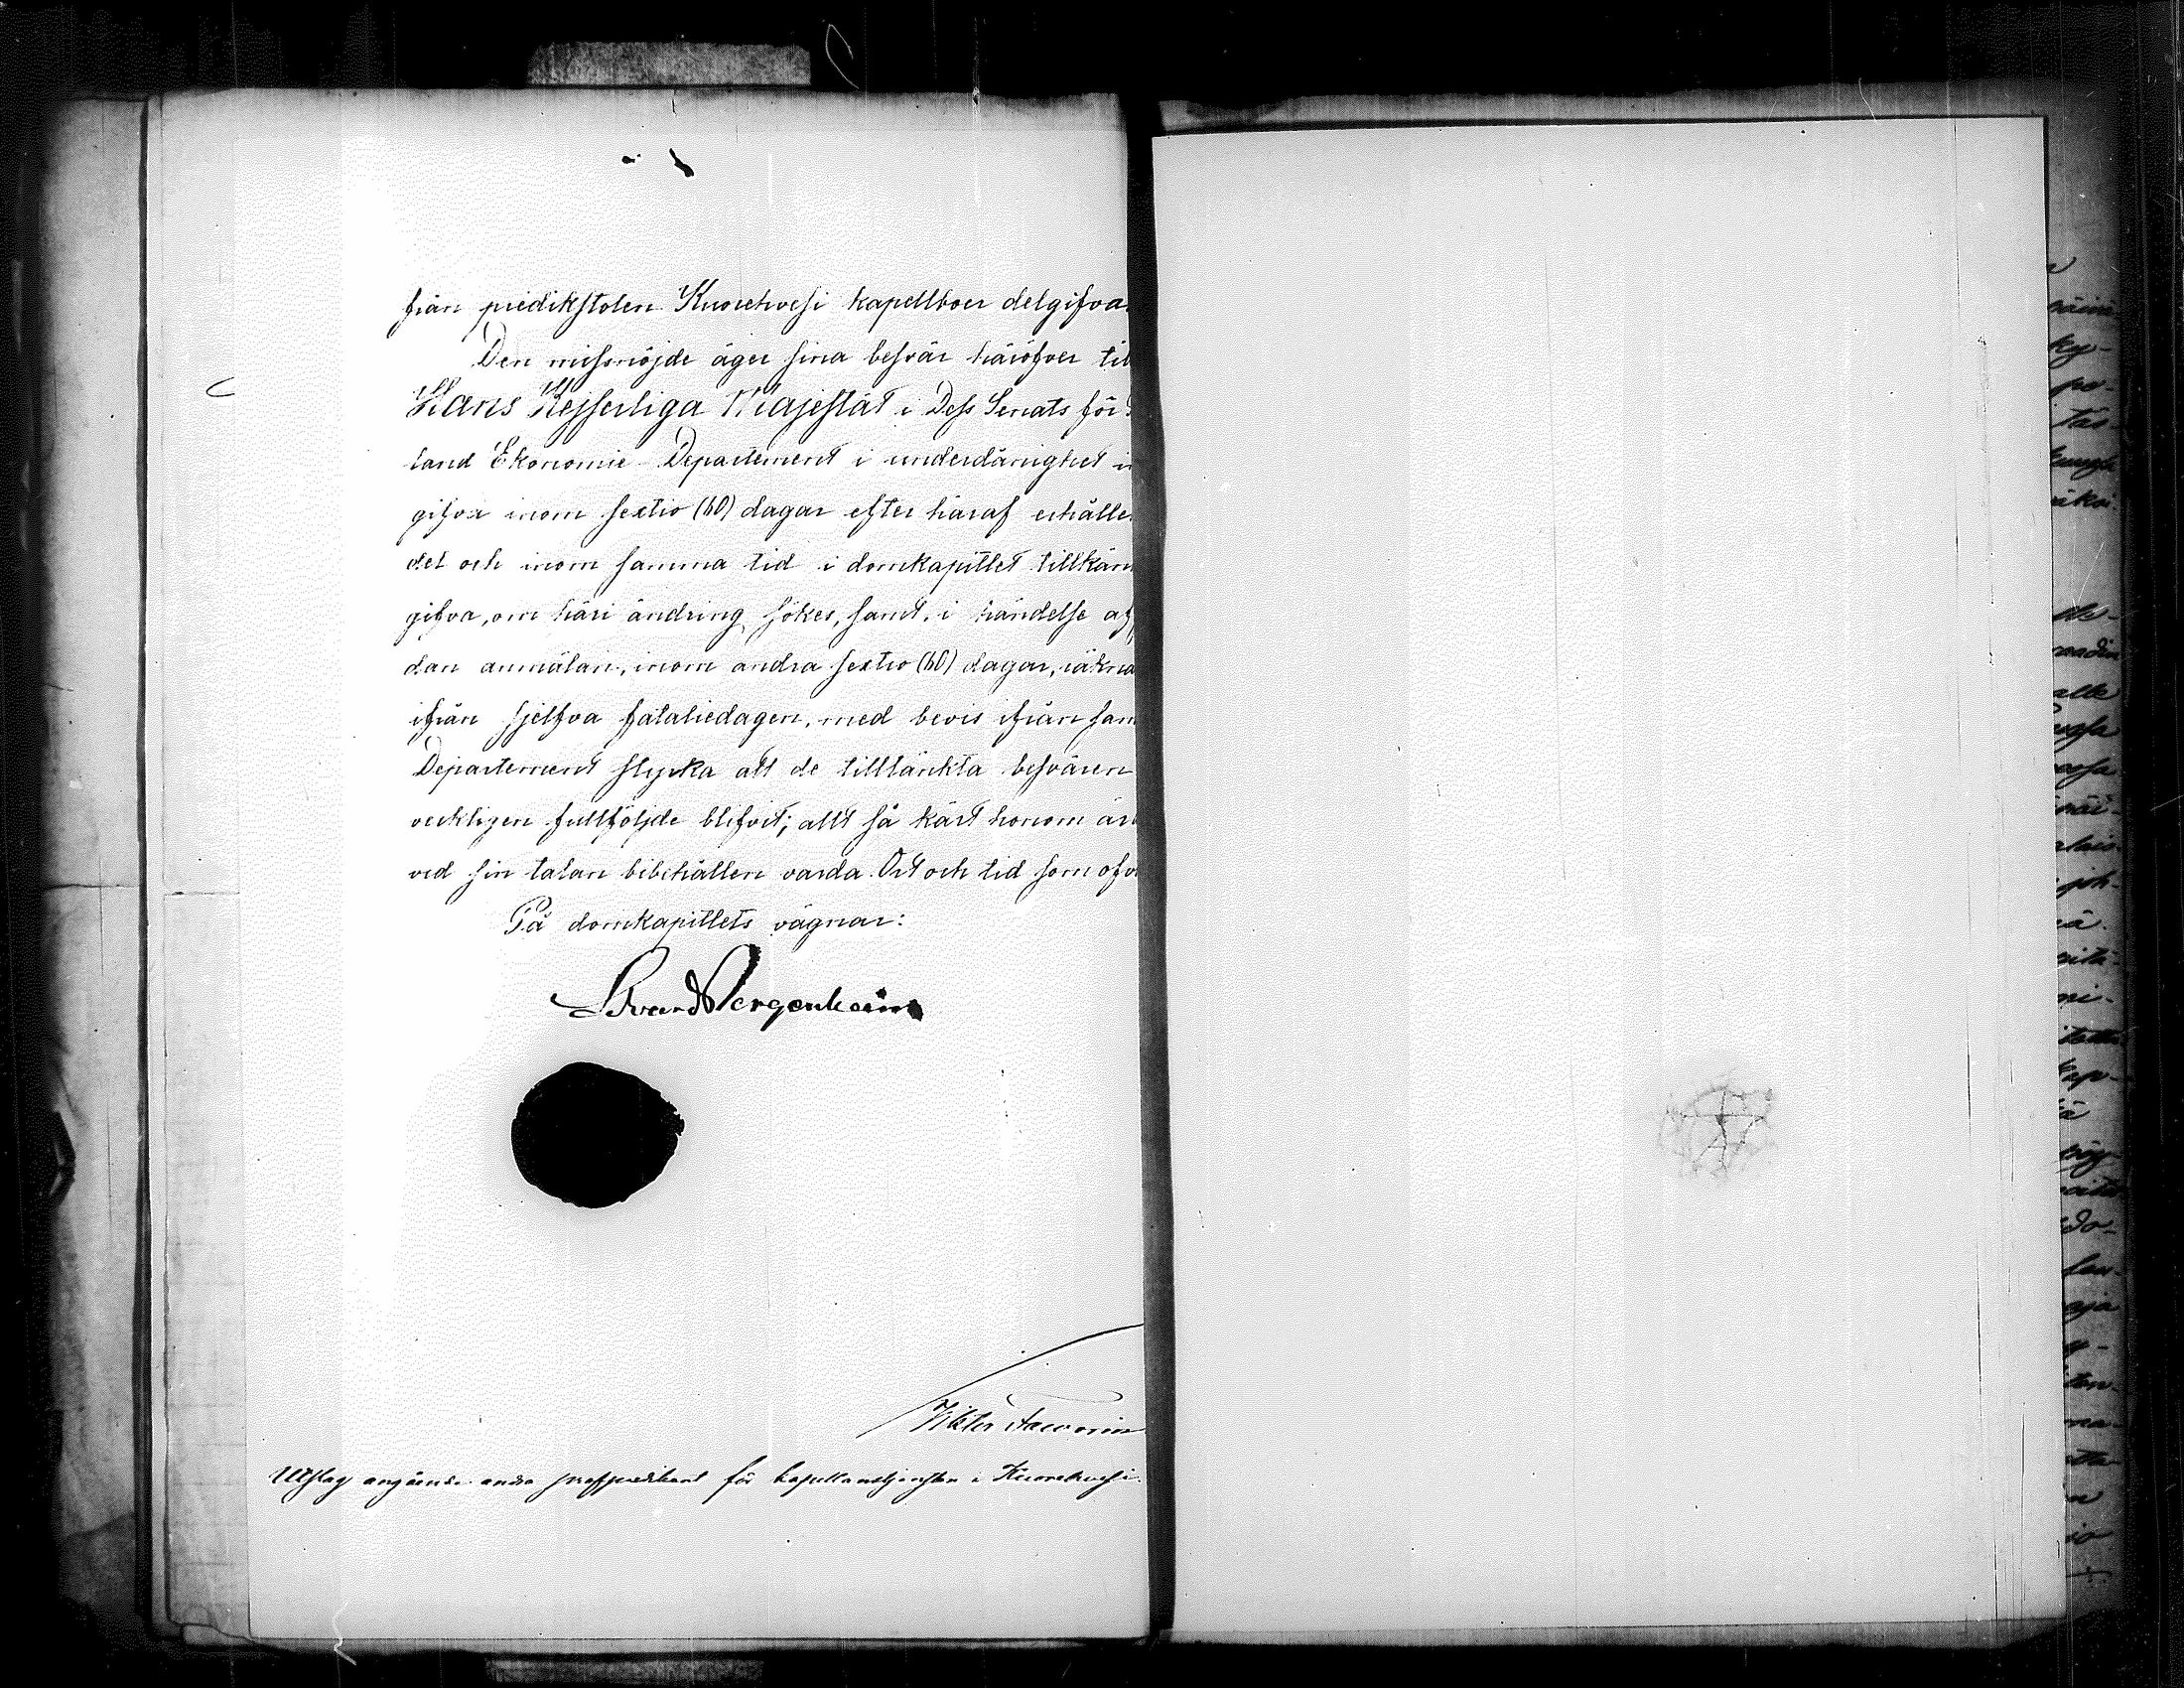 från predikstolen Kuorehvesi kapellboer delgifva
Den missnöjde äger sina besvär häröfver til
Hans Kejserliga Majestät i Dess Senats för
land Ekonomie Departement i underdånighet in
gifva inom sextio (60) dagar efter häraf erhålle
det och inom samma tid i domkapitlet tillkän
gifva, om häri ändring sökes, samt, i händelse af
dan anmälan, inom andra sextio (60) dagar, räkna
ifrån sjelfva fataliedagen, med bevis ifrån sam
Departement styrka att de tilltänkta besvären
verkligen fullföljde blifvit; allt så kärt honom är
vid sin talan bibehållen varda. Ort och tid som ofva
På domkapitlets vägnar:
Edvard Bergenheim
Viktor
Utslag angående andra profpredikant för kapellanstjensten i Kuorehvesi.